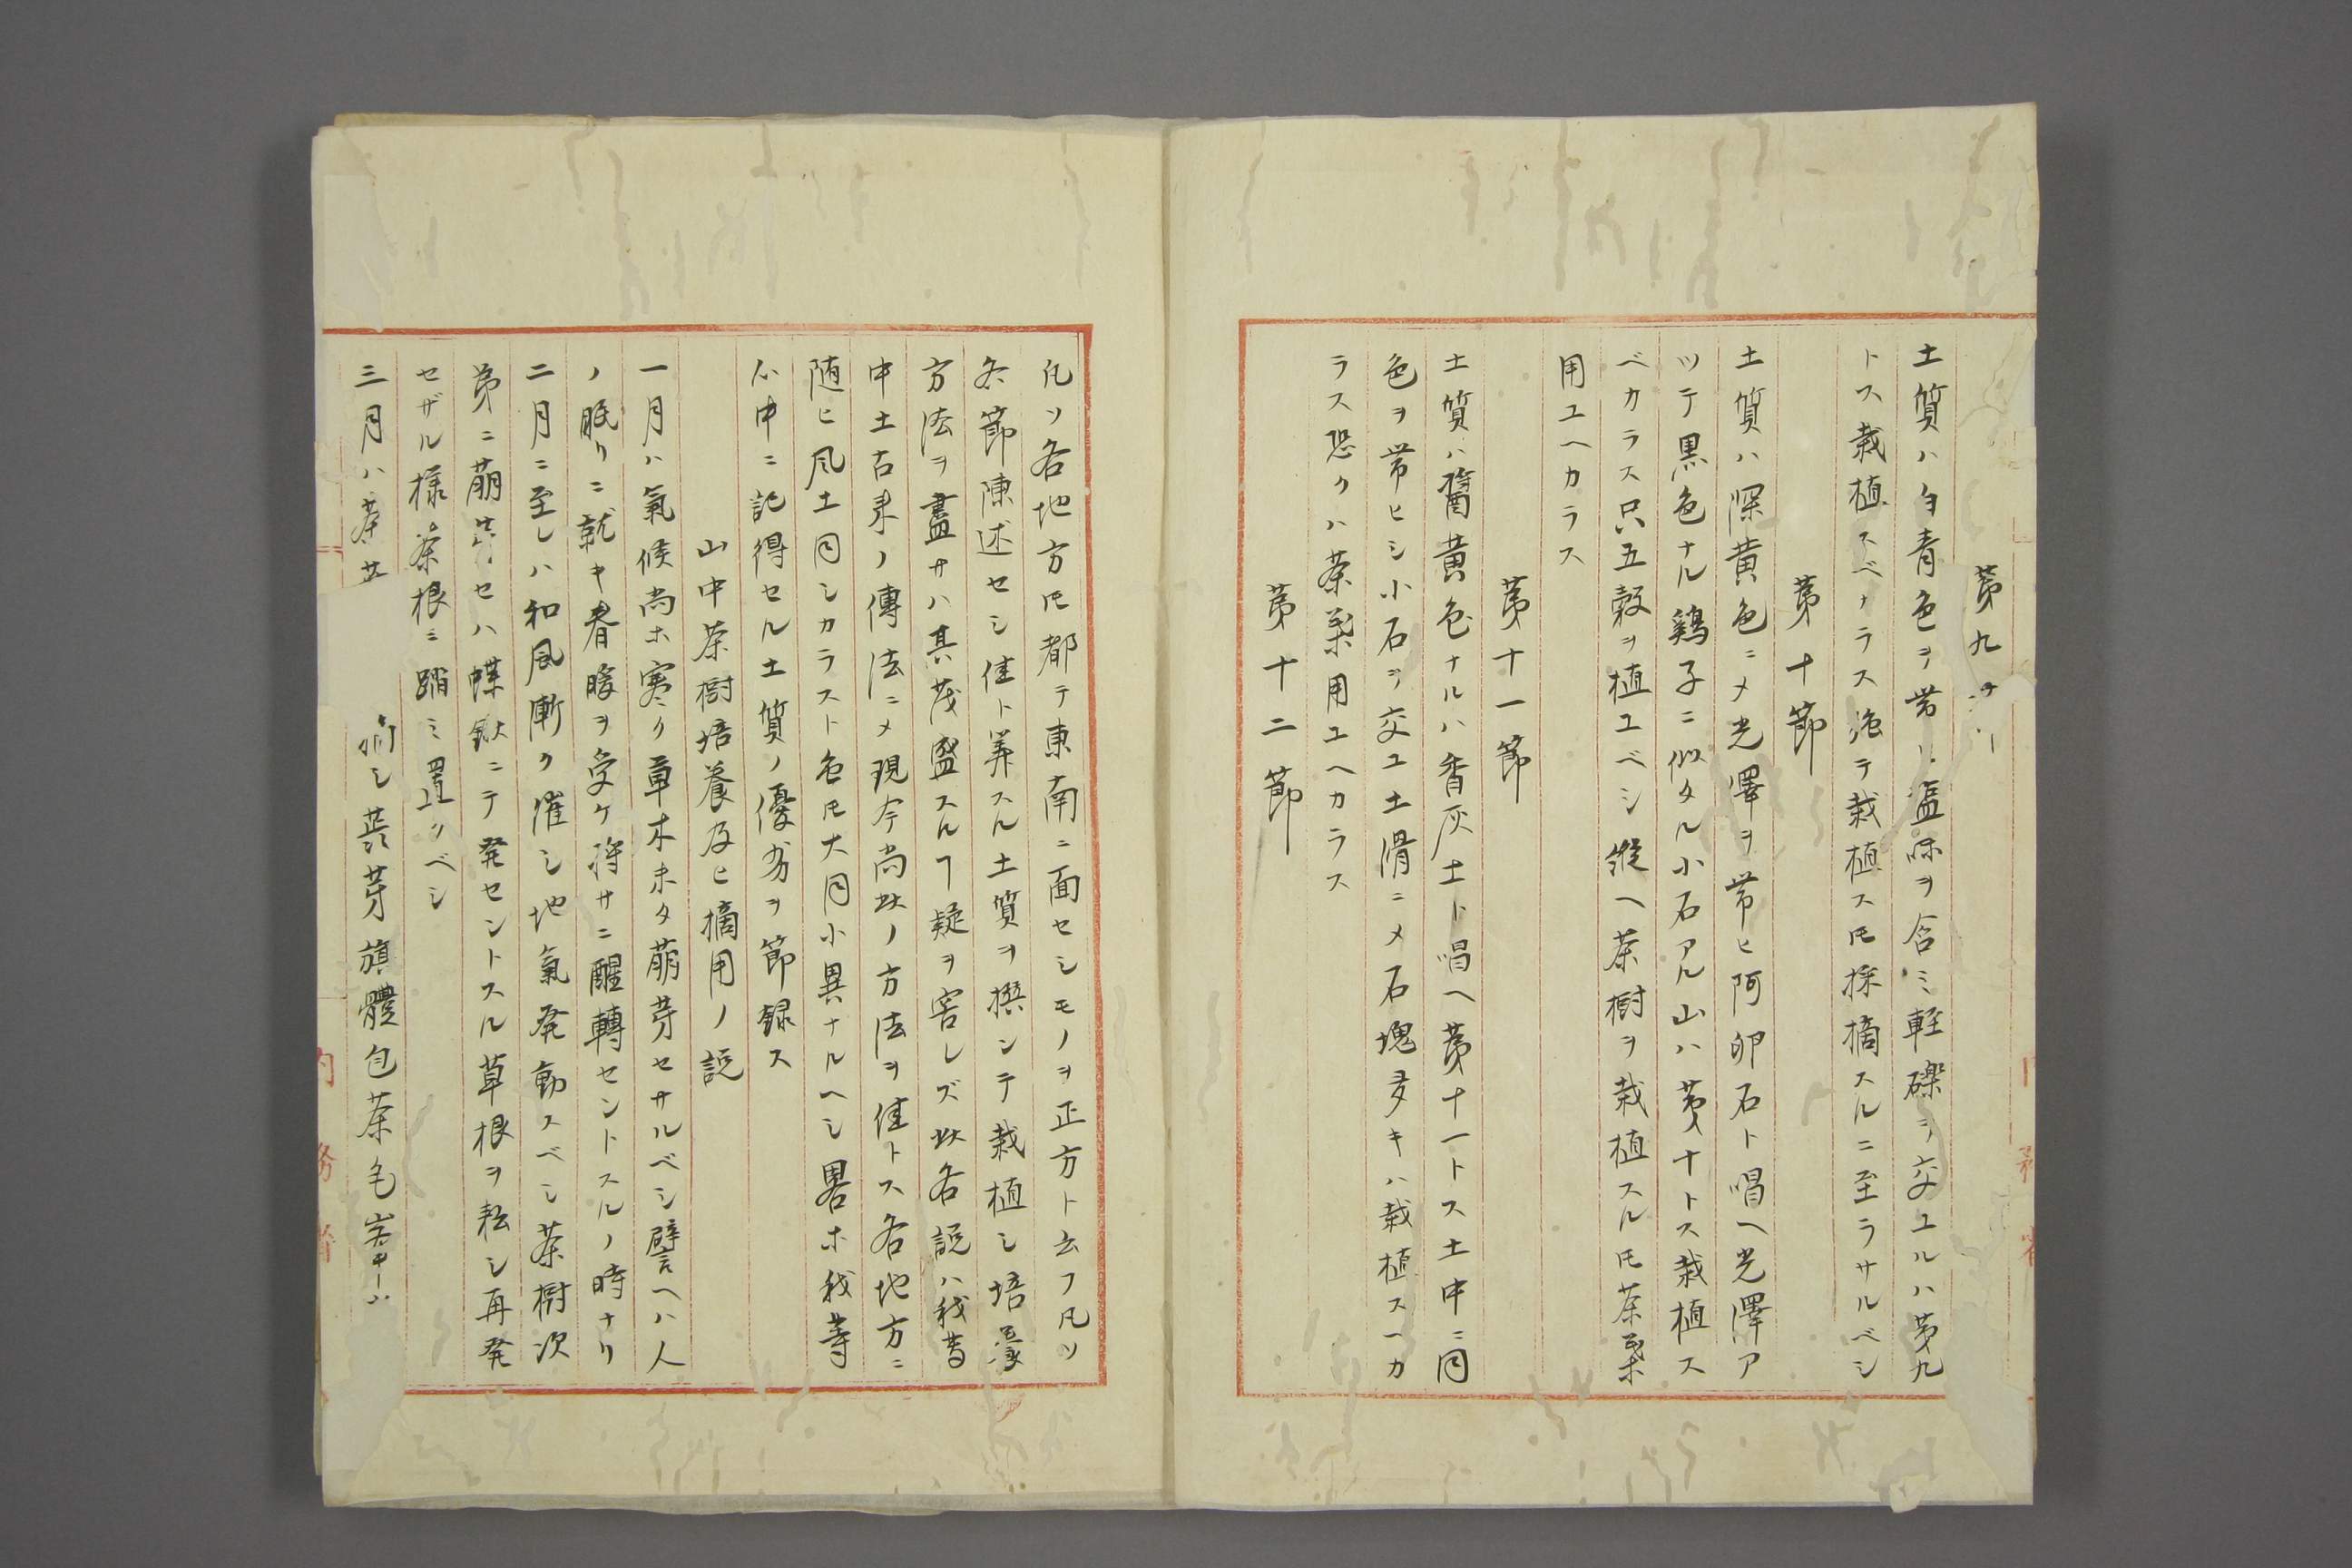 第九
土質ハ白青色ヲ帯ヒ塩味ヲ含ミ軽礫ヲ交ユルハ第九
トス栽植スベカラス強テ栽植スルトモ採摘スルニ至ラサルベシ
第十節
土質ハ深黄色ニメ光澤ヲ帯ヒ阿卵石ト唱ヘ光澤ア
ツテ黒色ナル鶏子ニ似タル小石アル山ハ第十トス栽植ス
ベカラス只五穀ヲ植ユベシ縦ヘ茶樹ヲ栽植スルトモ茶葉
用ユヘカラス
第十一節
土質ハ醬黄色ナルハ香灰土ト唱ヘ第十一トス土中ニ同
色ヲ帯ヒシ小石ヲ交ユ土滑ニメ石塊多キハ栽植スヘカ
ラス恐クハ茶葉用ユヘカラス
第十二節
凡ソ各地方トモ都テ東南ニ面セシモノヲ正方ト云フ凡ソ
各節陳述セシ佳ト算スル土質ヲ撰ンテ栽植シ培養
方法ヲ盡サハ其茂盛スルヿ疑ヲ容レズ此各説ハ我昔
中土古来ノ傳法ニメ現今尚此ノ方法ヲ佳トス各地方ニ
随ヒ風土同シカラスト色トモ大同小異ナルヘシ畧ホ我等
心中ニ記得セル土質ノ優劣ヲ節録ス
山中茶樹培養及ヒ摘用ノ説
一月ハ氣候尚ホ寒ク草木未タ萠芽セサルベシ譬ヘハ人
ノ眠リニ就キ春暖ヲ受ケ将サニ醒轉セントスルノ時ナリ
二月ニ至レハ和風漸ク催シ地氣発動スベシ茶樹次
第ニ萠芽セハ蝶鍬ニテ発セントスル草根ヲ耘シ再発
セザル様茶根ニ踏ミ置クベシ
三月ハ茶芽 シ其芽旗體包茶毛
内務省